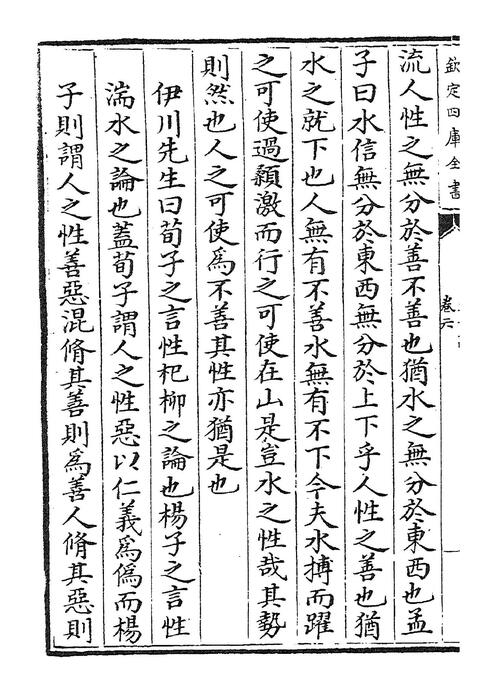 欽定四庫全書
卷六
流人性之無分於善不善也猶水之無分於東西也孟
子曰水信無分於東西無分於上下乎人性之善也猶
水之就下也人無有不善水無有不下今夫水搏而躍
之可使過顙激而行之可使在山是豈水之性哉其勢
則然也人之可使為不善其性亦猶是也
伊川先生曰荀子之言性杞柳之論也楊子之言性
湍水之論也蓋荀子謂人之性惡以仁義為偽而楊
子則謂人之性善惡混脩其善則為善人脩其惡則